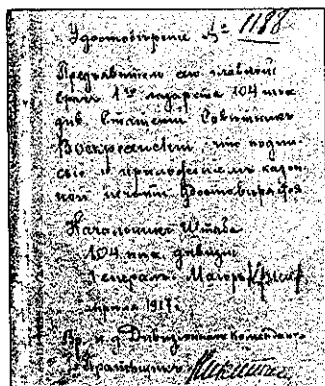 Удостовѣренiе № 1188
Предъявитель сего главный
врачъ 1го лазарета 104 пѣх.
див. Статскiй Совѣтникъ
Воскресенскiй что подпи-
сью и приложенiемъ казен-
ной печати удостовѣряется
Начальникъ Штаба
104 пѣх. дивизiи
Генералъ Маiоръ
апрѣля 1917 г.
Вр. и. д. Дивизiоннаго Коменданта